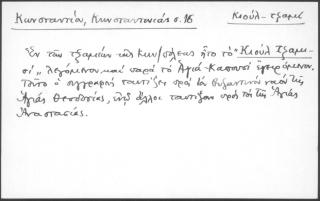 Κωνσταντίου, Κωνσταντινιάς σ. 16 Κιούλ-τζαμί
Ἐκ τῶν τζαμίων τῆς Κων/πόλεως ἦτο τὸ "Κιούλ τζαμι-
σί" λεγόμενον, καὶ παρὰ τὸ Ἁγιά-καπουσί ἐγειρόμενον.
Τοῦτο ὁ συγγραφεὺς ταυτίζει πρὸς τὸν βυζαντινὸν ναὸν τῆς
Ἁγίας Θεοδοσίας, ἐνῷ ἄλλοι ταυτίζουν πρὸς τὸν τῆς Ἁγίας
Ἀναστασίας.